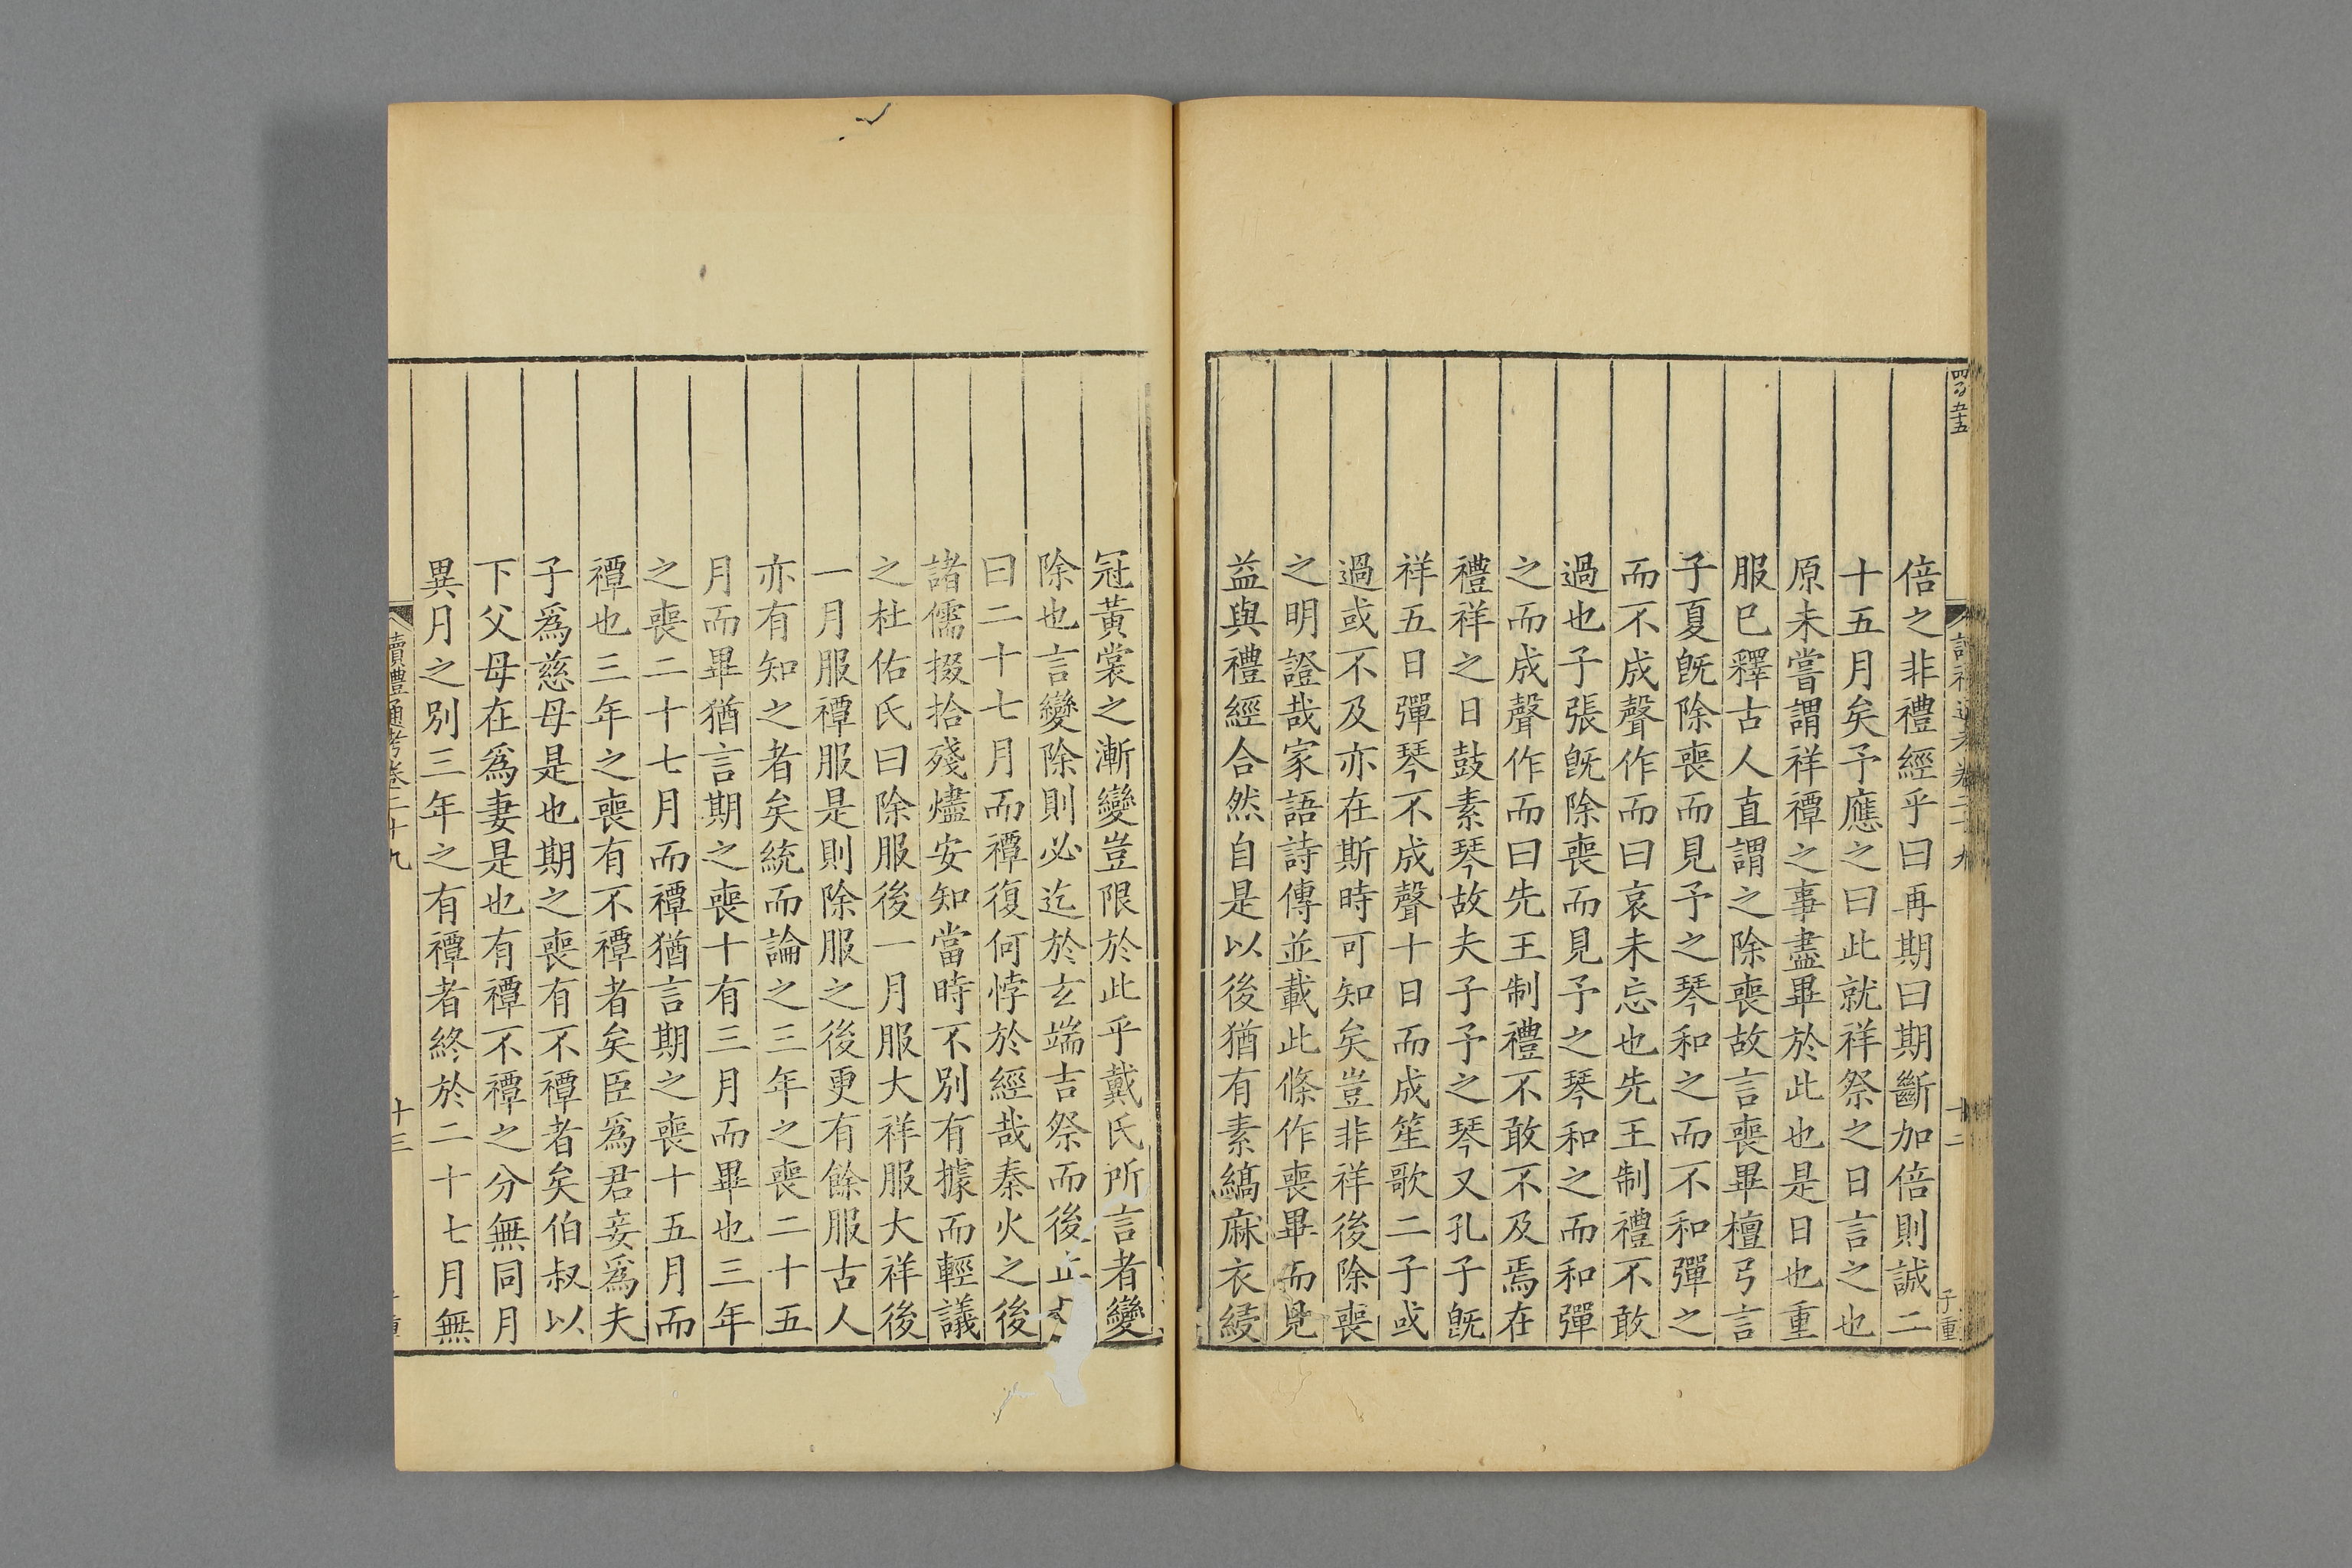 倍之非禮經乎曰再期曰期斷加倍則誠二
十五月矣予應之曰此就祥祭之日言之也
原未嘗謂祥禫之事盡畢於此也是日也重
服巳釋古人直謂之除喪故言喪畢檀弓言
子夏旣除喪而見予之琴和之而不和彈之
而不成聲作而曰哀未忘也先王制禮不敢
過也子張旣除喪而見予之琴和之而和彈
之而成聲作而曰先王制禮不敢不及焉在
禮祥之日鼓素琴故夫子予之琴又孔子旣
祥五日彈琴不成聲十日而成笙歌二子或
過或不及亦在斯時可知矣豈非祥後除喪
之明證哉家語詩傳並載此條作喪畢而見
益與禮經合然自是以後猶有素縞麻衣綅
冠黃裳之漸變豈限於此乎戴氏所言者變
除也言變除則必迄於玄端吉祭而後止
曰二十七月而禫復何悖於經哉秦火之後
諸儒掇拾殘燼安知當時不別有據而輕議
之杜佑氏曰除服後一月服大祥服大祥後
一月服禫服是則除服之後更有餘服古人
亦有知之者矣統而論之三年之喪二十五
月而畢猶言期之喪十有三月而畢也三年
之喪二十七月而禫猶言期之喪十五月而
禫也三年之喪有不禫者矣臣爲君妾爲夫
子爲慈母是也期之喪有不禫者矣伯叔以
下父母在爲妻是也有禫不禫之分無同月
異月之別三年之有禫者終於二十七月無
讀禮通考卷二十九
十三